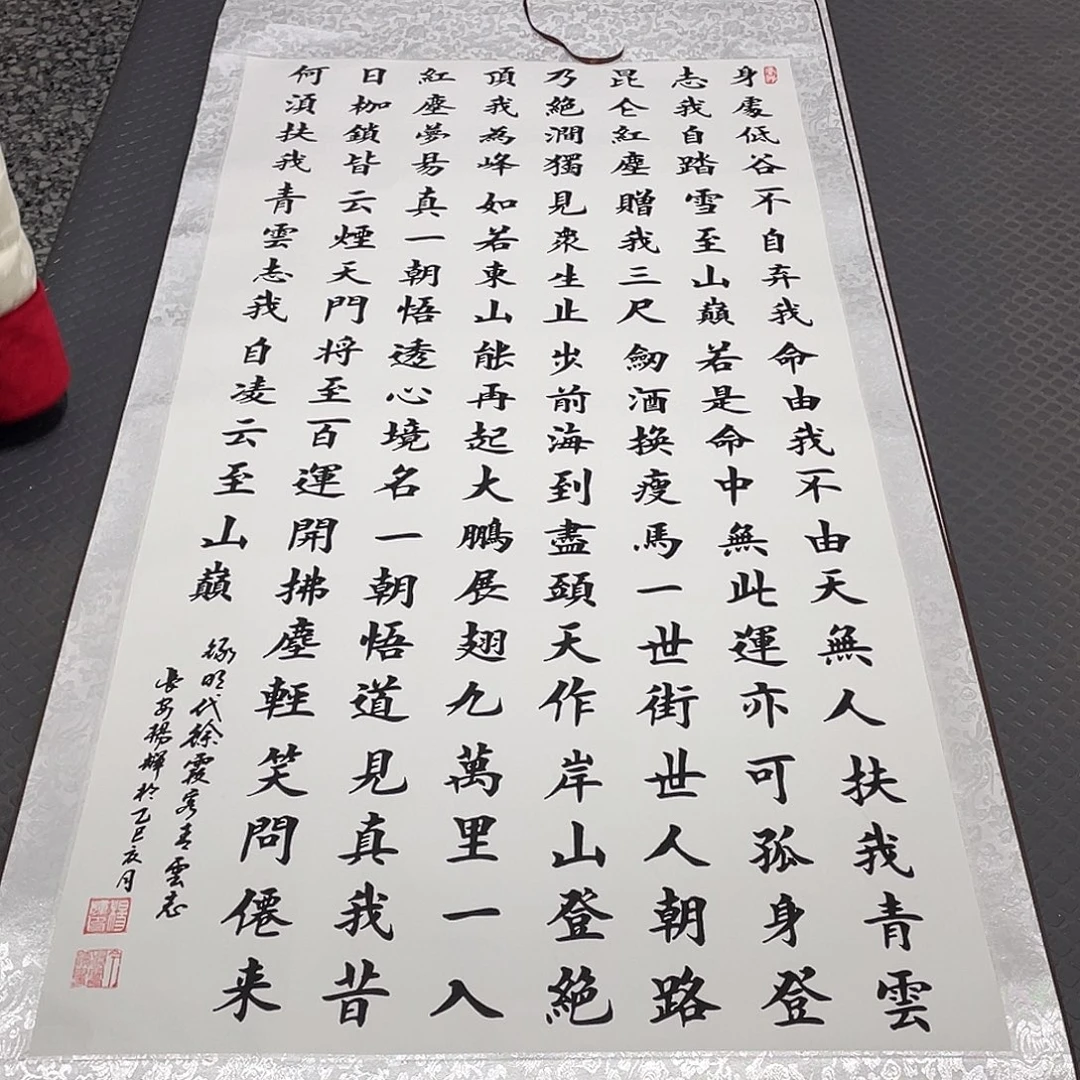 身處低谷不自弃我命由我不由天無人扶我青雲
志我自踏雪至山巔若是命中無此運亦可孤身登
昆仑紅塵贈我三尺劒酒換瘦馬一世街世人朝路
乃絕澗獨見衆生止步前海到盡頭天作岸山登絕
頂我為峰如若東山能再起大鵬展翅九萬里一入
紅塵夢易真一朝悟透心境名一朝悟道見真我昔
日枷鎖皆云煙天門将至百運開拂塵輕笑問僊来
何須扶我青雲志我自凌云至山巔
錄明代徐霞客青雲志
長安楊輝於乙巳亥月